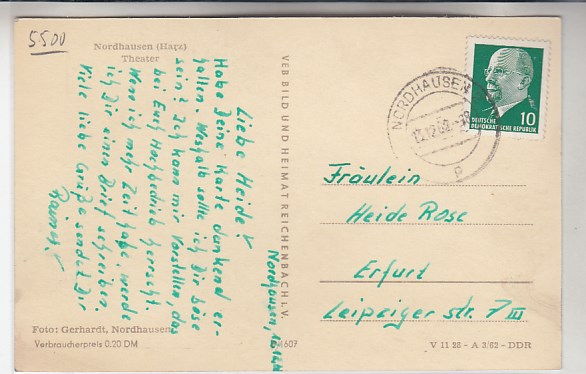 5500
Nordhausen (Harz)
Theater
Nordhausen, 12.12.
Liebe Heide!
Habe Deine Karte dankend er-
halten. Weshalb sollte ich Dir böse
sein? Ich kann mir vorstellen, das
bei Euch Hochbedrieb herrscht.
Wenn ich mehr Zeit habe, werde
ich Dir einen Brief schreiben.
Viele liebe Grüße sendet Dir
Rainer.
Foto: Gerhardt, Nordhausen
Verbraucherpreis 0.20 DM
VEB BILD UND HEIMAT REICHENBACH i. V.
607
NORDHAUSEN
12.62
p
10
DEUTSCHE
DEMOKRATISCHE REPUBLIK
Fräulein
Heide Rose
Erfurt
Leipziger Str. 7 III
V 11 28 - A 3/62 - DDR